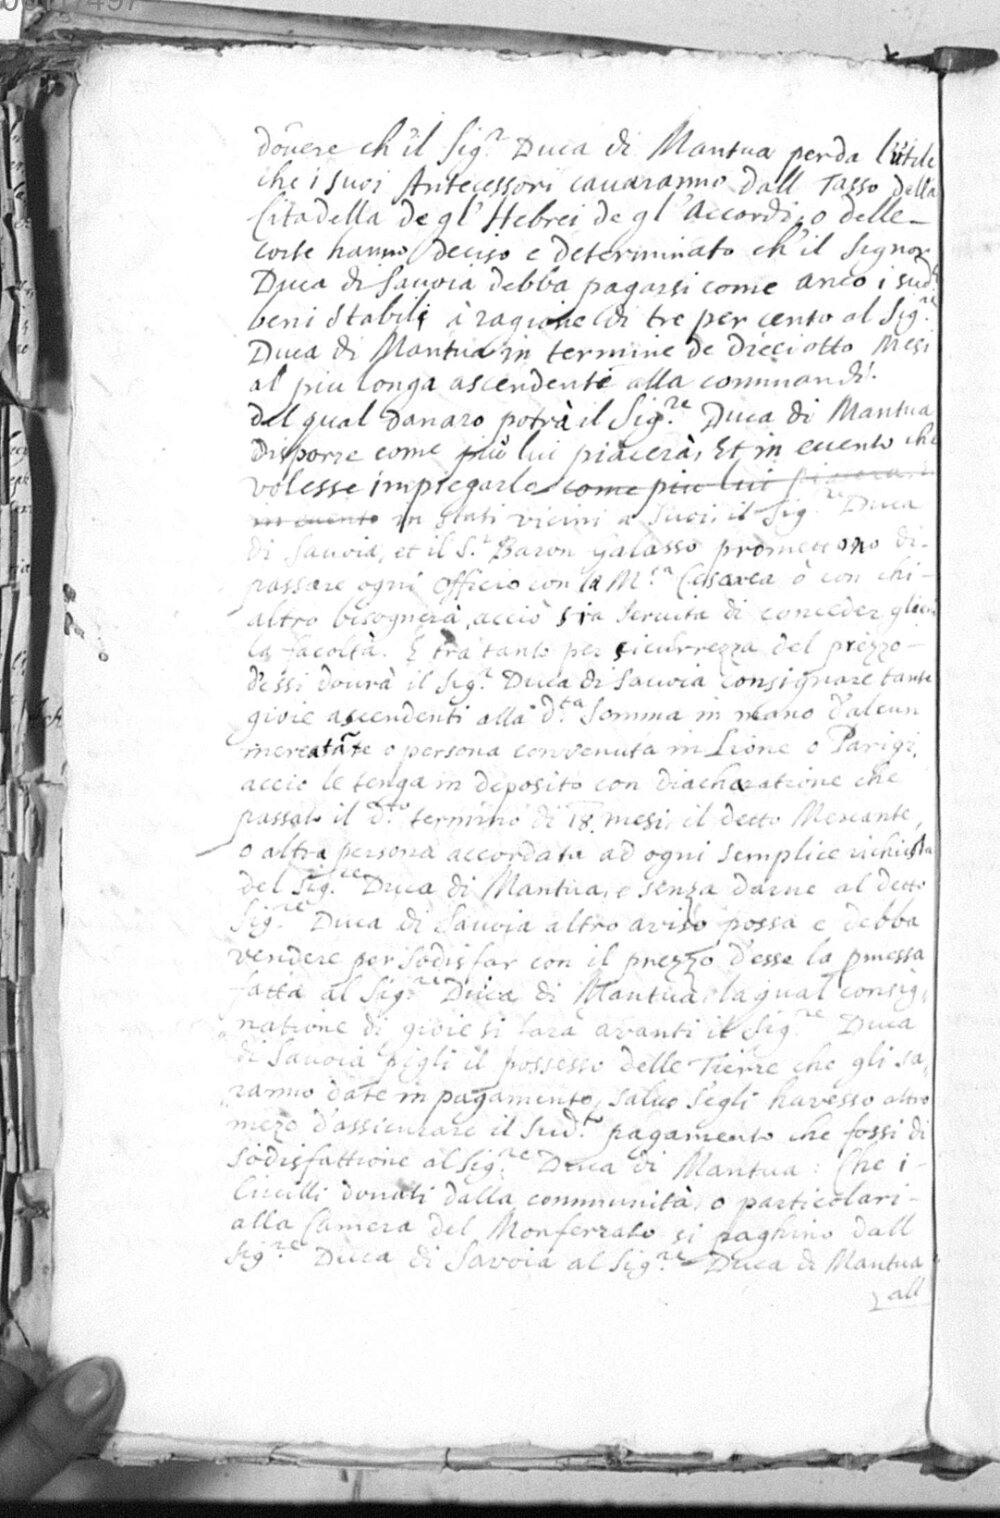 dovere ch'il Sig.re Duca di Mantua perda l'utile
che i suoi Antecessori cavaranno dall Tasso della
Citadella de gl'Hebrei de gl'Accordi, o delle
corte hanno deciso e determinato ch'il Signor
Duca di Sauoia debba pagarsi come anco i sud.i
beni stabili à ragione di tre per cento al Sig.re
Duca di Mantua in termine de dieciotto Mesi
al piu longa ascendente alla
Del qual danaro potrà il Sig.re Duca di Mantua
Disporre come più lui piacerà, Et in euento che
volesse impiegarle come piu lui piacera
in euento in stati vicini a suoi, il Sig.re Duca
di Sauoia, et il S.r Baron Galasso promettono di
passare ogni officio con la M.ta Cesarea ò con chi
altro bisognerà, acciò sia seruita di conceder
la facoltà. E trà tanto per sicurrezza del prezzo
d'essi dourà il Sig.r Duca di Sauoia consignare tante
gioie ascendenti alla d.ta somma in mano d'alcun
mercatãte o persona convenuta in Lione o Parigi,
accio le tenga in deposito con diacharatione che
passato il d.to termino di 18. mesi, il detto Mercante,
o altra persona accordata ad ogni semplice richiesta
del Sig.re Duca di Mantua, e senza darne al detto
Sig.re Duca di Sauoia altro aviso possa e debba
vendere per sodisfar con il prezzo d'esse la pmessa
fatta al Sig.re Duca di Mantua, la qual consig,
natione di gioie si farà avanti il Sig.re Duca
di Sauoia pigli il possesso delle Tierre che gli sa,
ranno date in pagamento, salvo s'egli havesse altro
mezo d'assicurare il sud.to pagamento che fossi di
sodisfattione al Sig.re Duca di Mantua: Che i
Lincilli donati dalla communità, o particolari
alla Camera del Monferrato si paghino dall
Sig.re Duca di Savoia al Sig.re Duca di Mantua
all